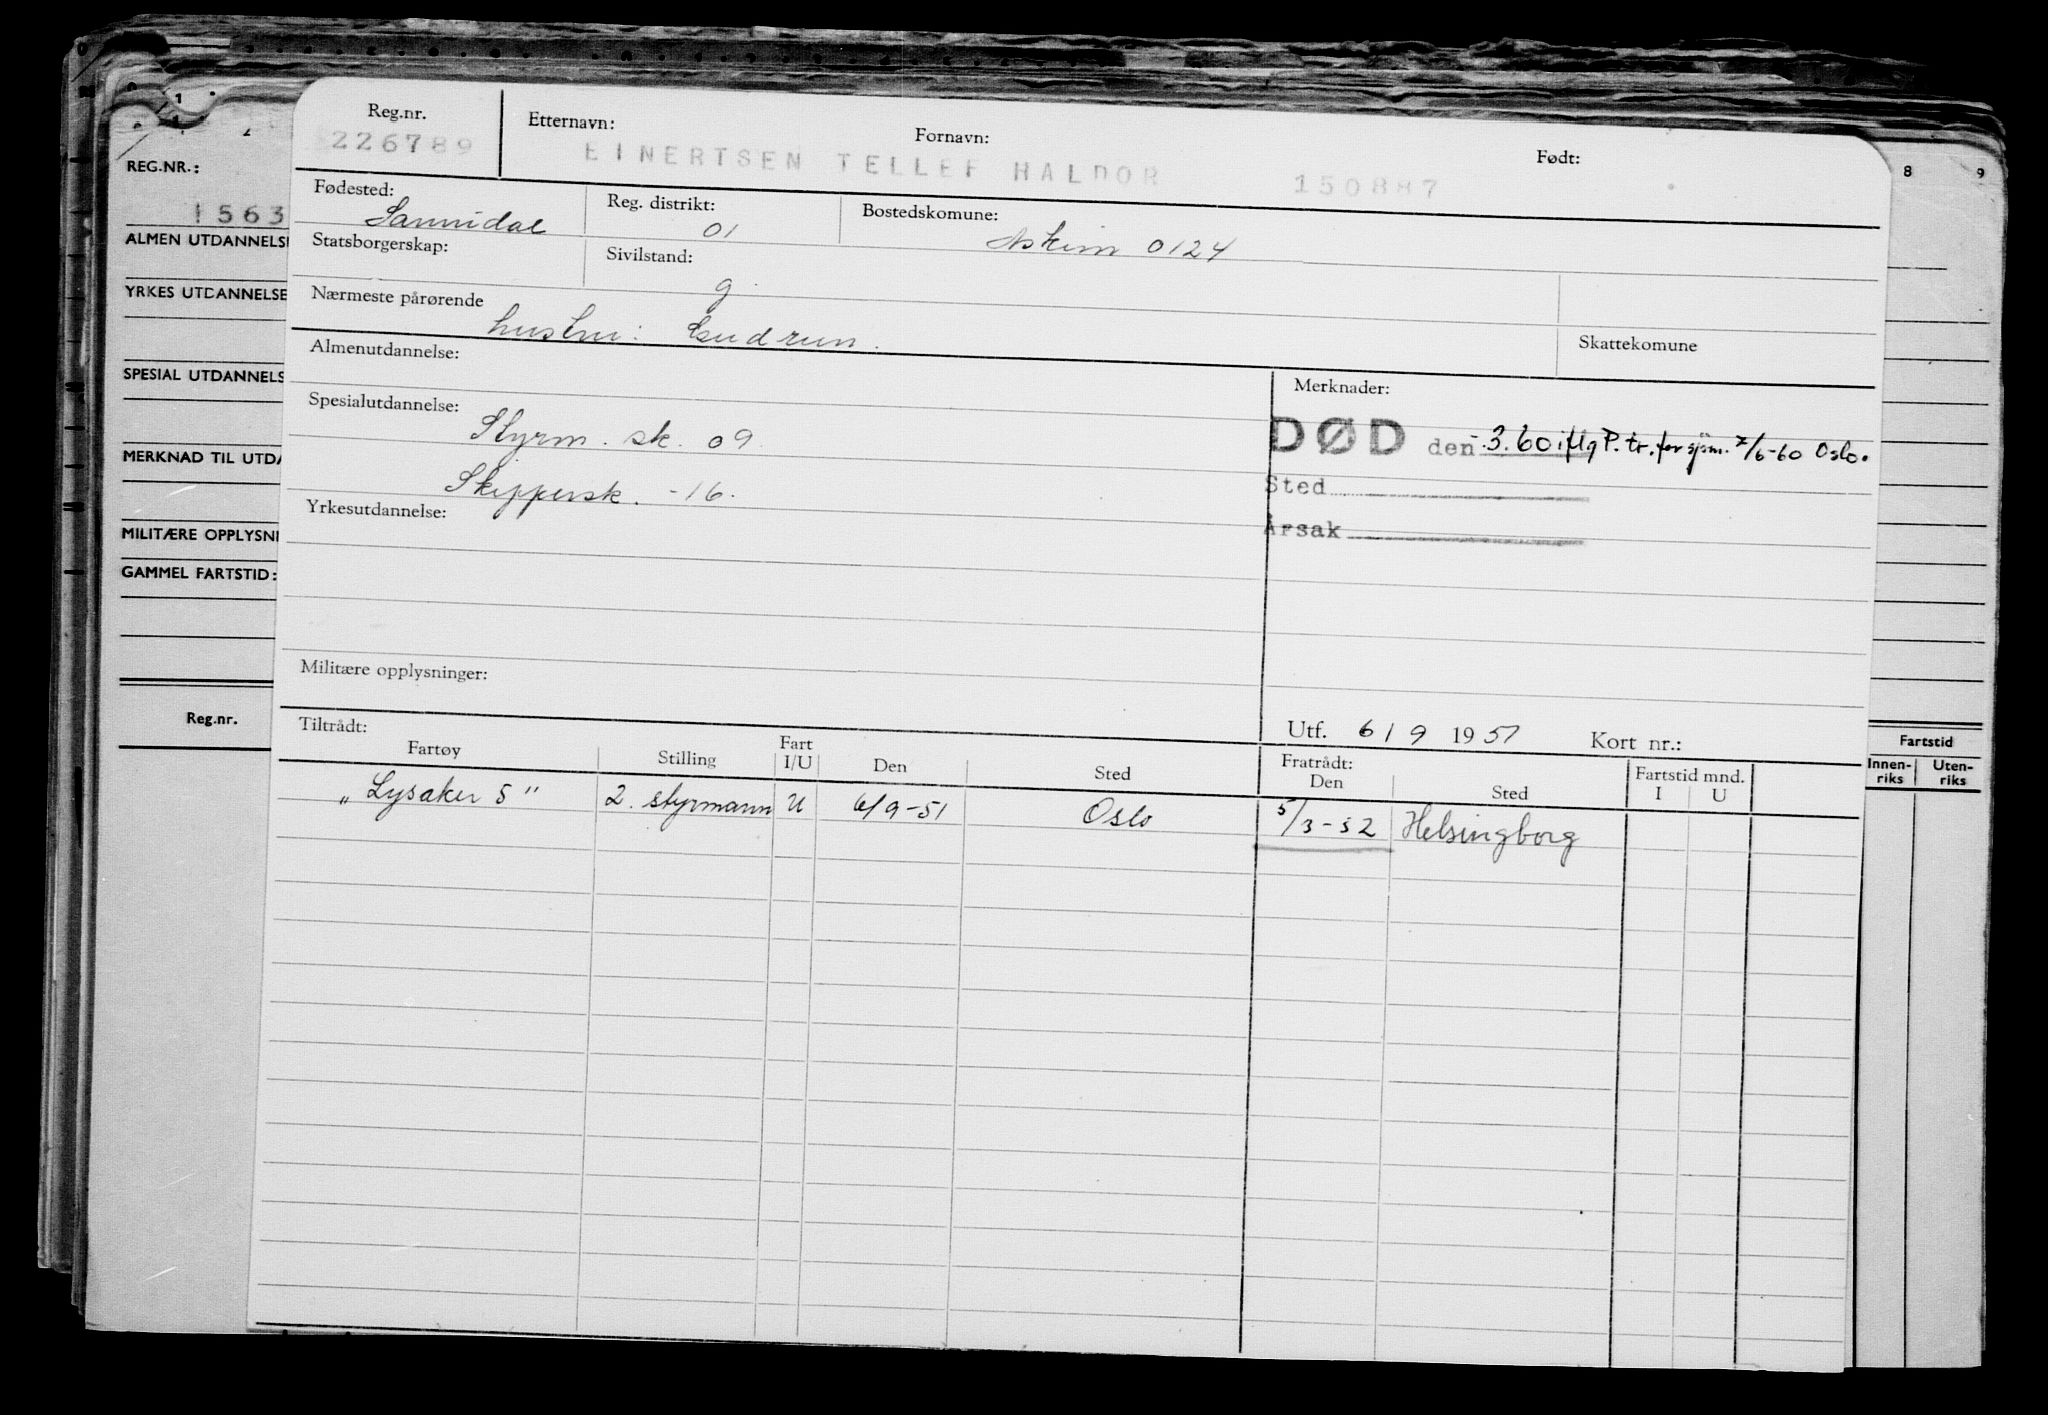 Reg.nr.
226789
Etternavn:
Fornavn:
Født:
EINERTSEN TELLEF HALDOR 150887
Fødested:
Sannidal
Reg. distrikt:
01
Bostedskomune:
Askim 0124
Statsborgerskap:
Sivilstand:
g.
Nærmeste pårørende
hustru: Gudrun.
Skattekomune
Almenutdannelse:
Merknader:
DØD den -.3.60 iflg P. tr. for sjøm. 7/6-60 Oslo.
Sted
Årsak
Spesialutdannelse:
Styrm. sk. 09.
Skippersk. -16.
Yrkesutdannelse:
Militære opplysninger:
Utf. 6/9 1951 Kort nr.:
Tiltrådt:
Fratrådt:
Fartøy Stilling Fart I/U Den Sted Den Sted Fartstid mnd. I U
"Lysaker 5" 2. styrmann U 6/9-51 Oslo 5/3-52 Helsingborg
REG.NR.:
1563
ALMEN UTDANNELS
YRKES UTDANNELSE
SPESIAL UTDANNELS
MERKNAD TIL UTDA
MILITÆRE OPPLYSNI
GAMMEL FARTSTID:
Reg.nr.
8 9
Fartstid
Innen-riks Uten-riks